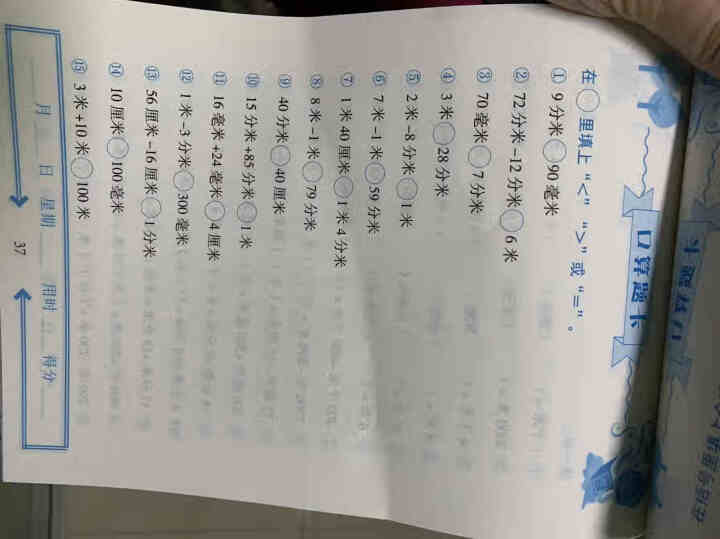 口算题卡
在○里填上“<”“>”或“=”。
① 9分米○90毫米
② 72分米-12分米○6米
③ 70毫米○7分米
④ 3米○28分米
⑤ 2米-8分米○1米
⑥ 7米-1米○59分米
⑦ 1米40厘米○1米4分米
⑧ 8米-1米○79分米
⑨ 40分米○40厘米
⑩ 15分米+85分米○1米
⑪ 16毫米+24毫米○4厘米
⑫ 1米-3分米○300毫米
⑬ 56厘米-16厘米○1分米
⑭ 10厘米○100毫米
⑮ 3米+10米○100米
月 日 星期 用时 得分
37